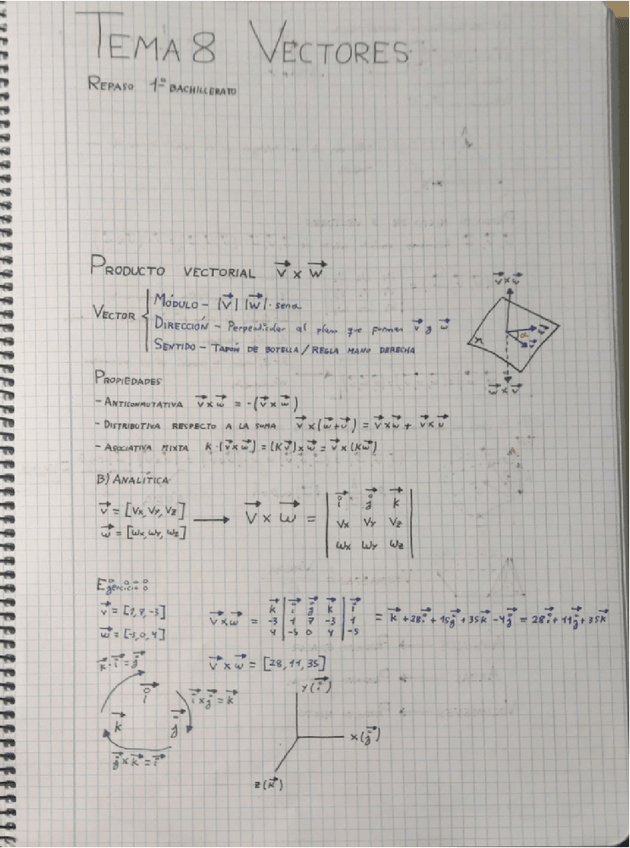 TEMA 8 VECTORES
REPASO 1º BACHILLERATO
PRODUCTO VECTORIAL v⃗ x w⃗
VECTOR
MÓDULO - |v⃗| |w⃗| · senα
DIRECCIÓN - Perpendicular al plano que forman v⃗ y w⃗
SENTIDO - TAPÓN DE BOTELLA / REGLA MANO DERECHA
v⃗ x w⃗
w⃗
α
v⃗
π
w⃗ x v⃗
PROPIEDADES
- ANTICONMUTATIVA v⃗ x w⃗ = -(v⃗ x w⃗)
- DISTRIBUTIVA RESPECTO A LA SUMA v⃗ x (w⃗ + u⃗) = v⃗ x w⃗ + v⃗ x u⃗
- ASOCIATIVA MIXTA K · (v⃗ x w⃗) = (K v⃗) x w⃗ = v⃗ x (K w⃗)
B) ANALÍTICA
v⃗ = [Vx, Vy, Vz]
w⃗ = [Wx, Wy, Wz]
→ v⃗ x w⃗ =
i⃗ j⃗ k⃗
Vx Vy Vz
Wx Wy Wz
Ejercicio
v⃗ = [1, 7, -3]
w⃗ = [-5, 0, 4]
v⃗ x w⃗ =
k⃗ | i⃗ j⃗ k⃗ | i⃗
-3 | 1 7 -3 | 1
4 | -5 0 4 | -5
= k⃗ + 28i⃗ + 15j⃗ + 35k⃗ - 4j⃗ = 28i⃗ + 11j⃗ + 35k⃗
v⃗ x w⃗ = [28, 11, 35]
k⃗ · i⃗ = j⃗
i⃗
i⃗ x j⃗ = k⃗
k⃗
j⃗
j⃗ x k⃗ = i⃗
Y (i⃗)
X (j⃗)
Z (k⃗)